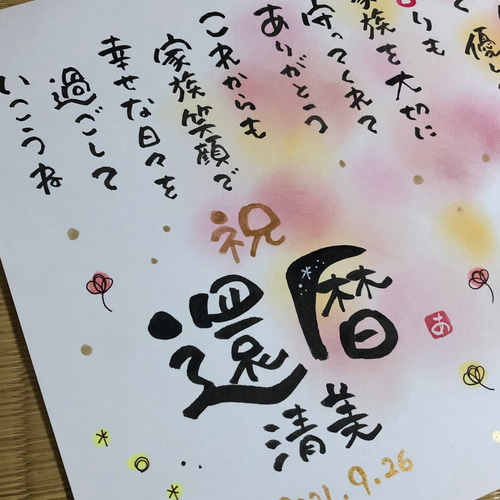 優し
りも
族を大切に
守ってくれて
ありがとう
これからも
家族笑顔で
幸せな日々を
過ごして
いこうね
祝
還暦
清美
あ
9.26